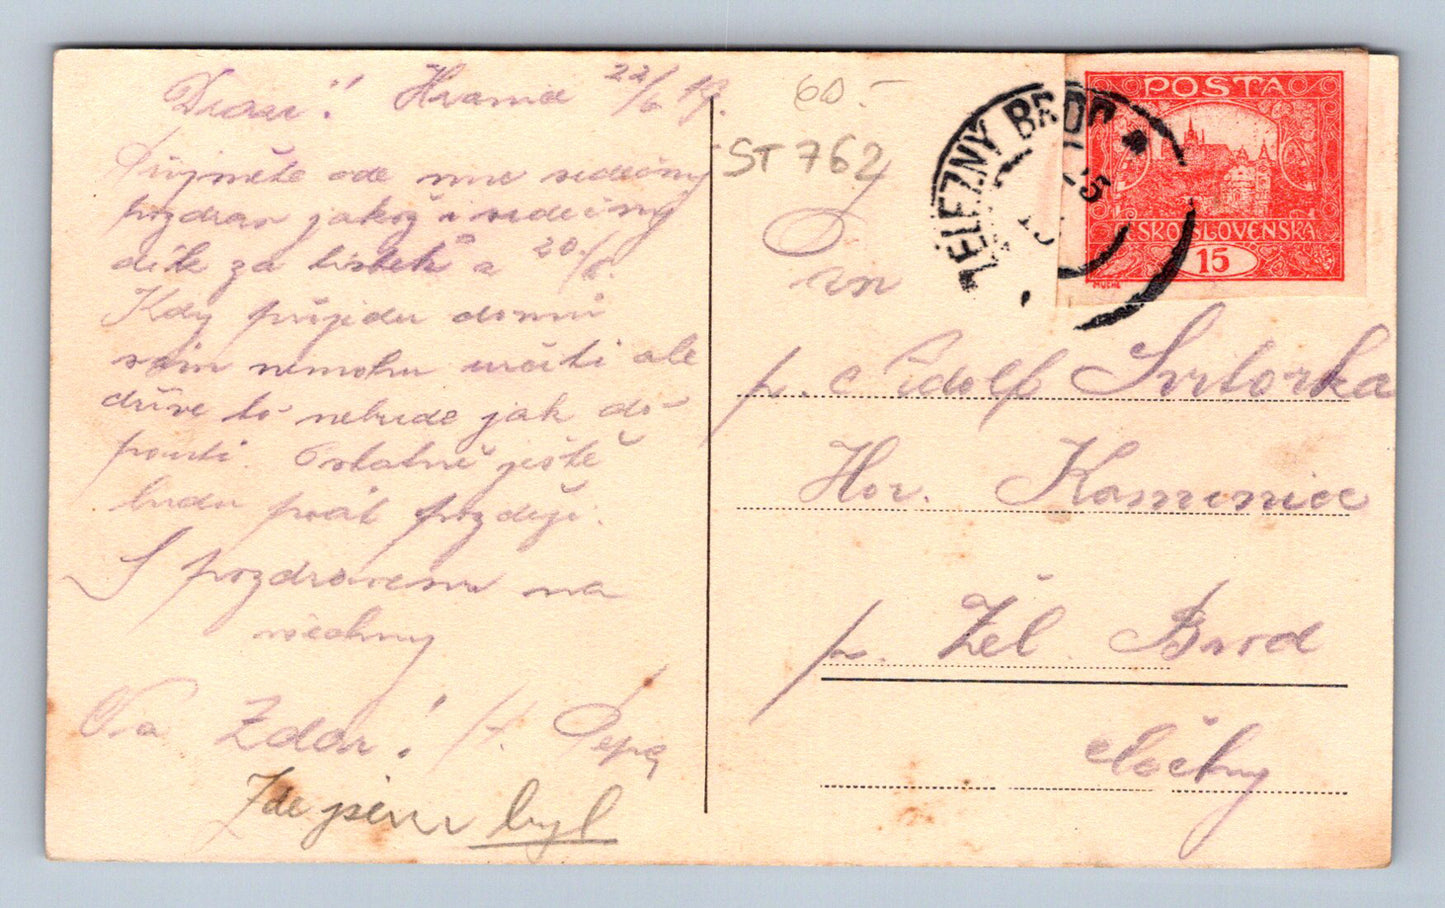 Hranice 22/6 19.
Přijměte ode mne srdečný
pozdrav jakož i srdečný
dík za lístek z 20./6.
Kdy přijedu domů
sám nemohu určiti ale
dříve to nebude jak do
pouti. Ostatně ještě
budu psát později.
S pozdravem na
všechny
Na Zdar! Pepa
Zde jsem byl
60.-
ST 762
ŽELEZNÝ BROD
25
POŠTA
ČESKOSLOVENSKÁ
15
MUCHA
Pan
p. Rudolf Svitorka
Hor. Kamenice
p. Žel. Brod
Čechy